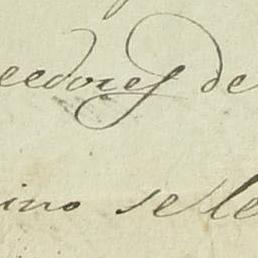 eedores de
ino se le